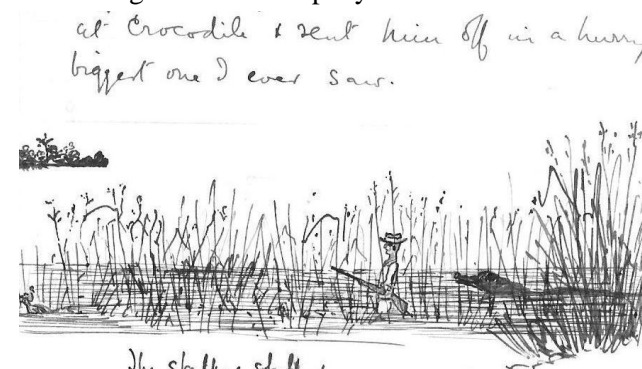 at Crocodile & sent him off in a hurry
biggest one I ever saw.
The stalker